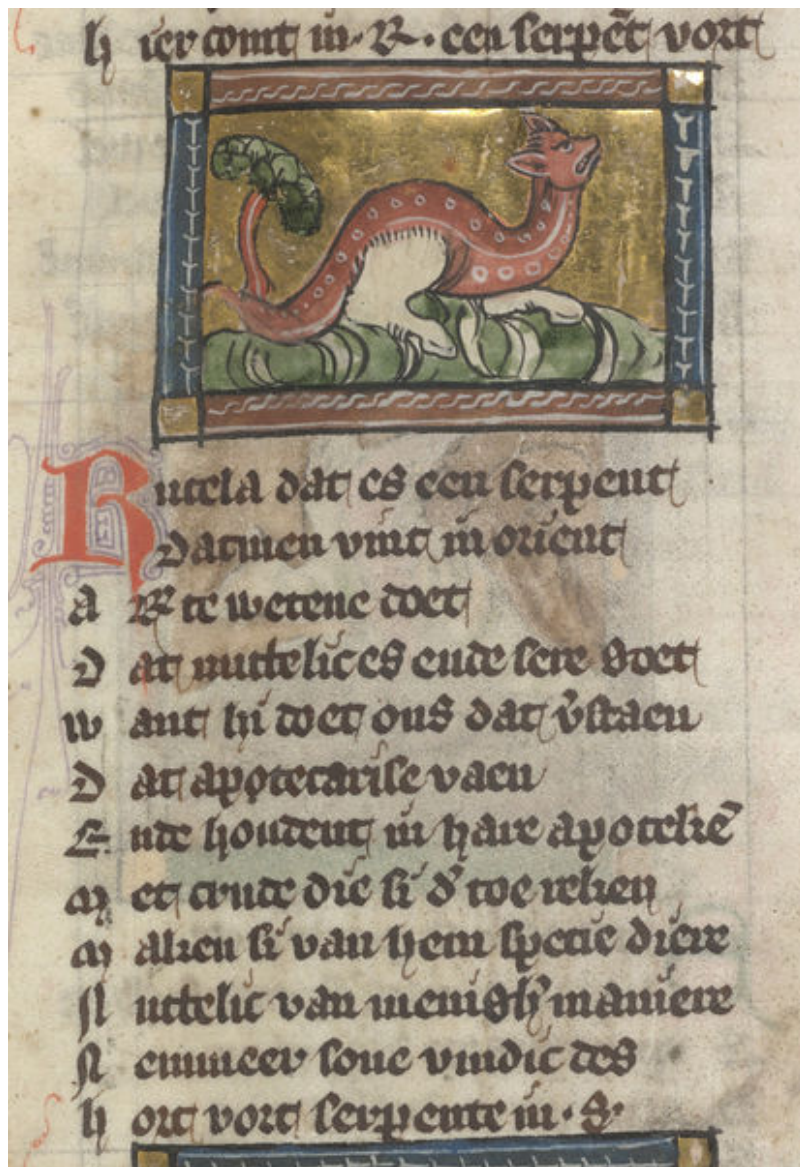 hier comt in .R. een serpēt vort
Rutela dat es een serpent
Datmen vint in orient
AR te wetene doet
Dat nuttelic es ende sere goet
want hi doet ons dat v̄staen
Dat apotecarise vaen
Ende houdent in hare apotekē
Met crude die si d' toe reken
Maken si van hem specie diere
Nuttelic van menigh' maniere
Nemmeer soue vindic des
hort vort serpente in .S.